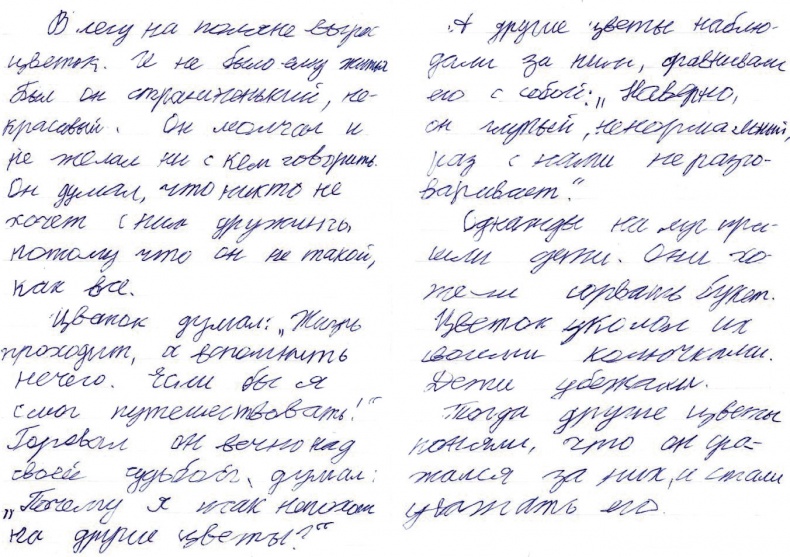 В лесу на поляне вырос
цветок. И не было ему житья
был он страшненький, не-
красивый. Он молчал и
не желал ни с кем говорить.
Он думал, что никто не
хочет с ним дружить,
потому что он не такой,
как все.
Цветок думал: „Жизнь
проходит, а вспомнить
нечего. Если бы я
смог путешествовать!“
Горевал он вечно над
своей судьбой, думал:
„Почему я так непохож
на другие цветы?“
А другие цветы наблю-
дали за ним, сравнивали
его с собой: „Наверно,
он глупый, ненормальный,
раз с нами не разго-
варивает“.
Однажды на луг при-
шли дети. Они хо-
тели сорвать букет.
Цветок уколол их
своими колючками.
Дети убежали.
Тогда другие цветы
поняли, что он сра-
жался за них, и стали
уважать его.